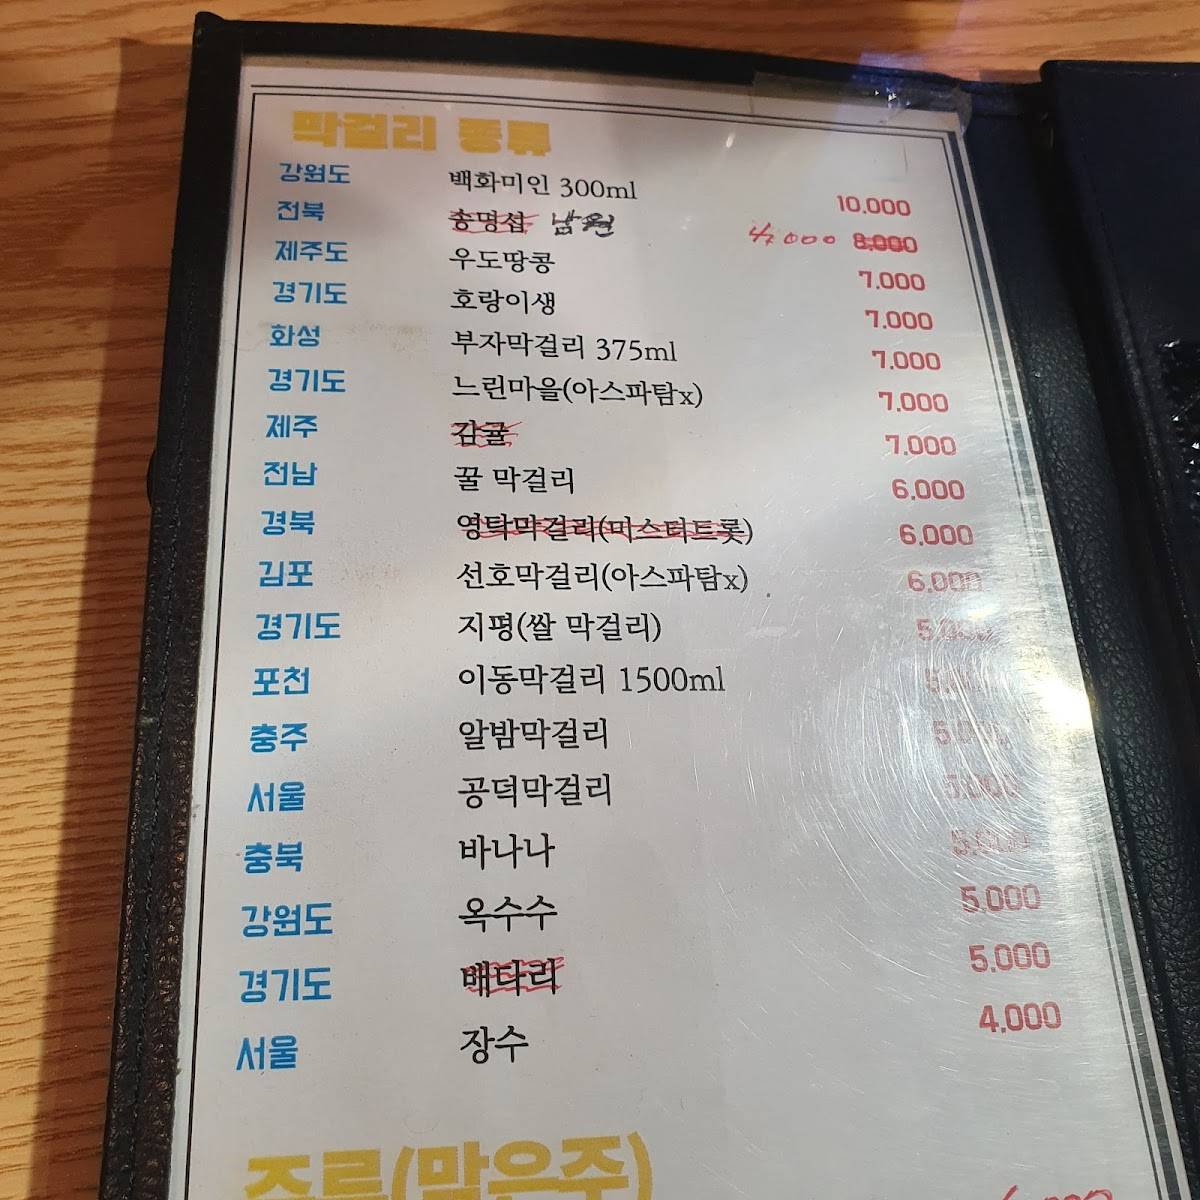 막걸리 종류
강원도 백화미인 300ml 10,000
전북 송명섭 남원 4,000 8,000
제주도 우도땅콩 7,000
경기도 호랑이생 7,000
화성 부자막걸리 375ml 7,000
경기도 느린마을(아스파탐x) 7,000
제주 감귤 7,000
전남 꿀 막걸리 6,000
경북 영탁막걸리(미스터트롯) 6,000
김포 선호막걸리(아스파탐x) 6,000
경기도 지평(쌀 막걸리) 5,000
포천 이동막걸리 1500ml 5,000
충주 알밤막걸리 5,000
서울 공덕막걸리 5,000
충북 바나나 5,000
강원도 옥수수 5,000
경기도 배다리 5,000
서울 장수 4,000
주류(맑은주)